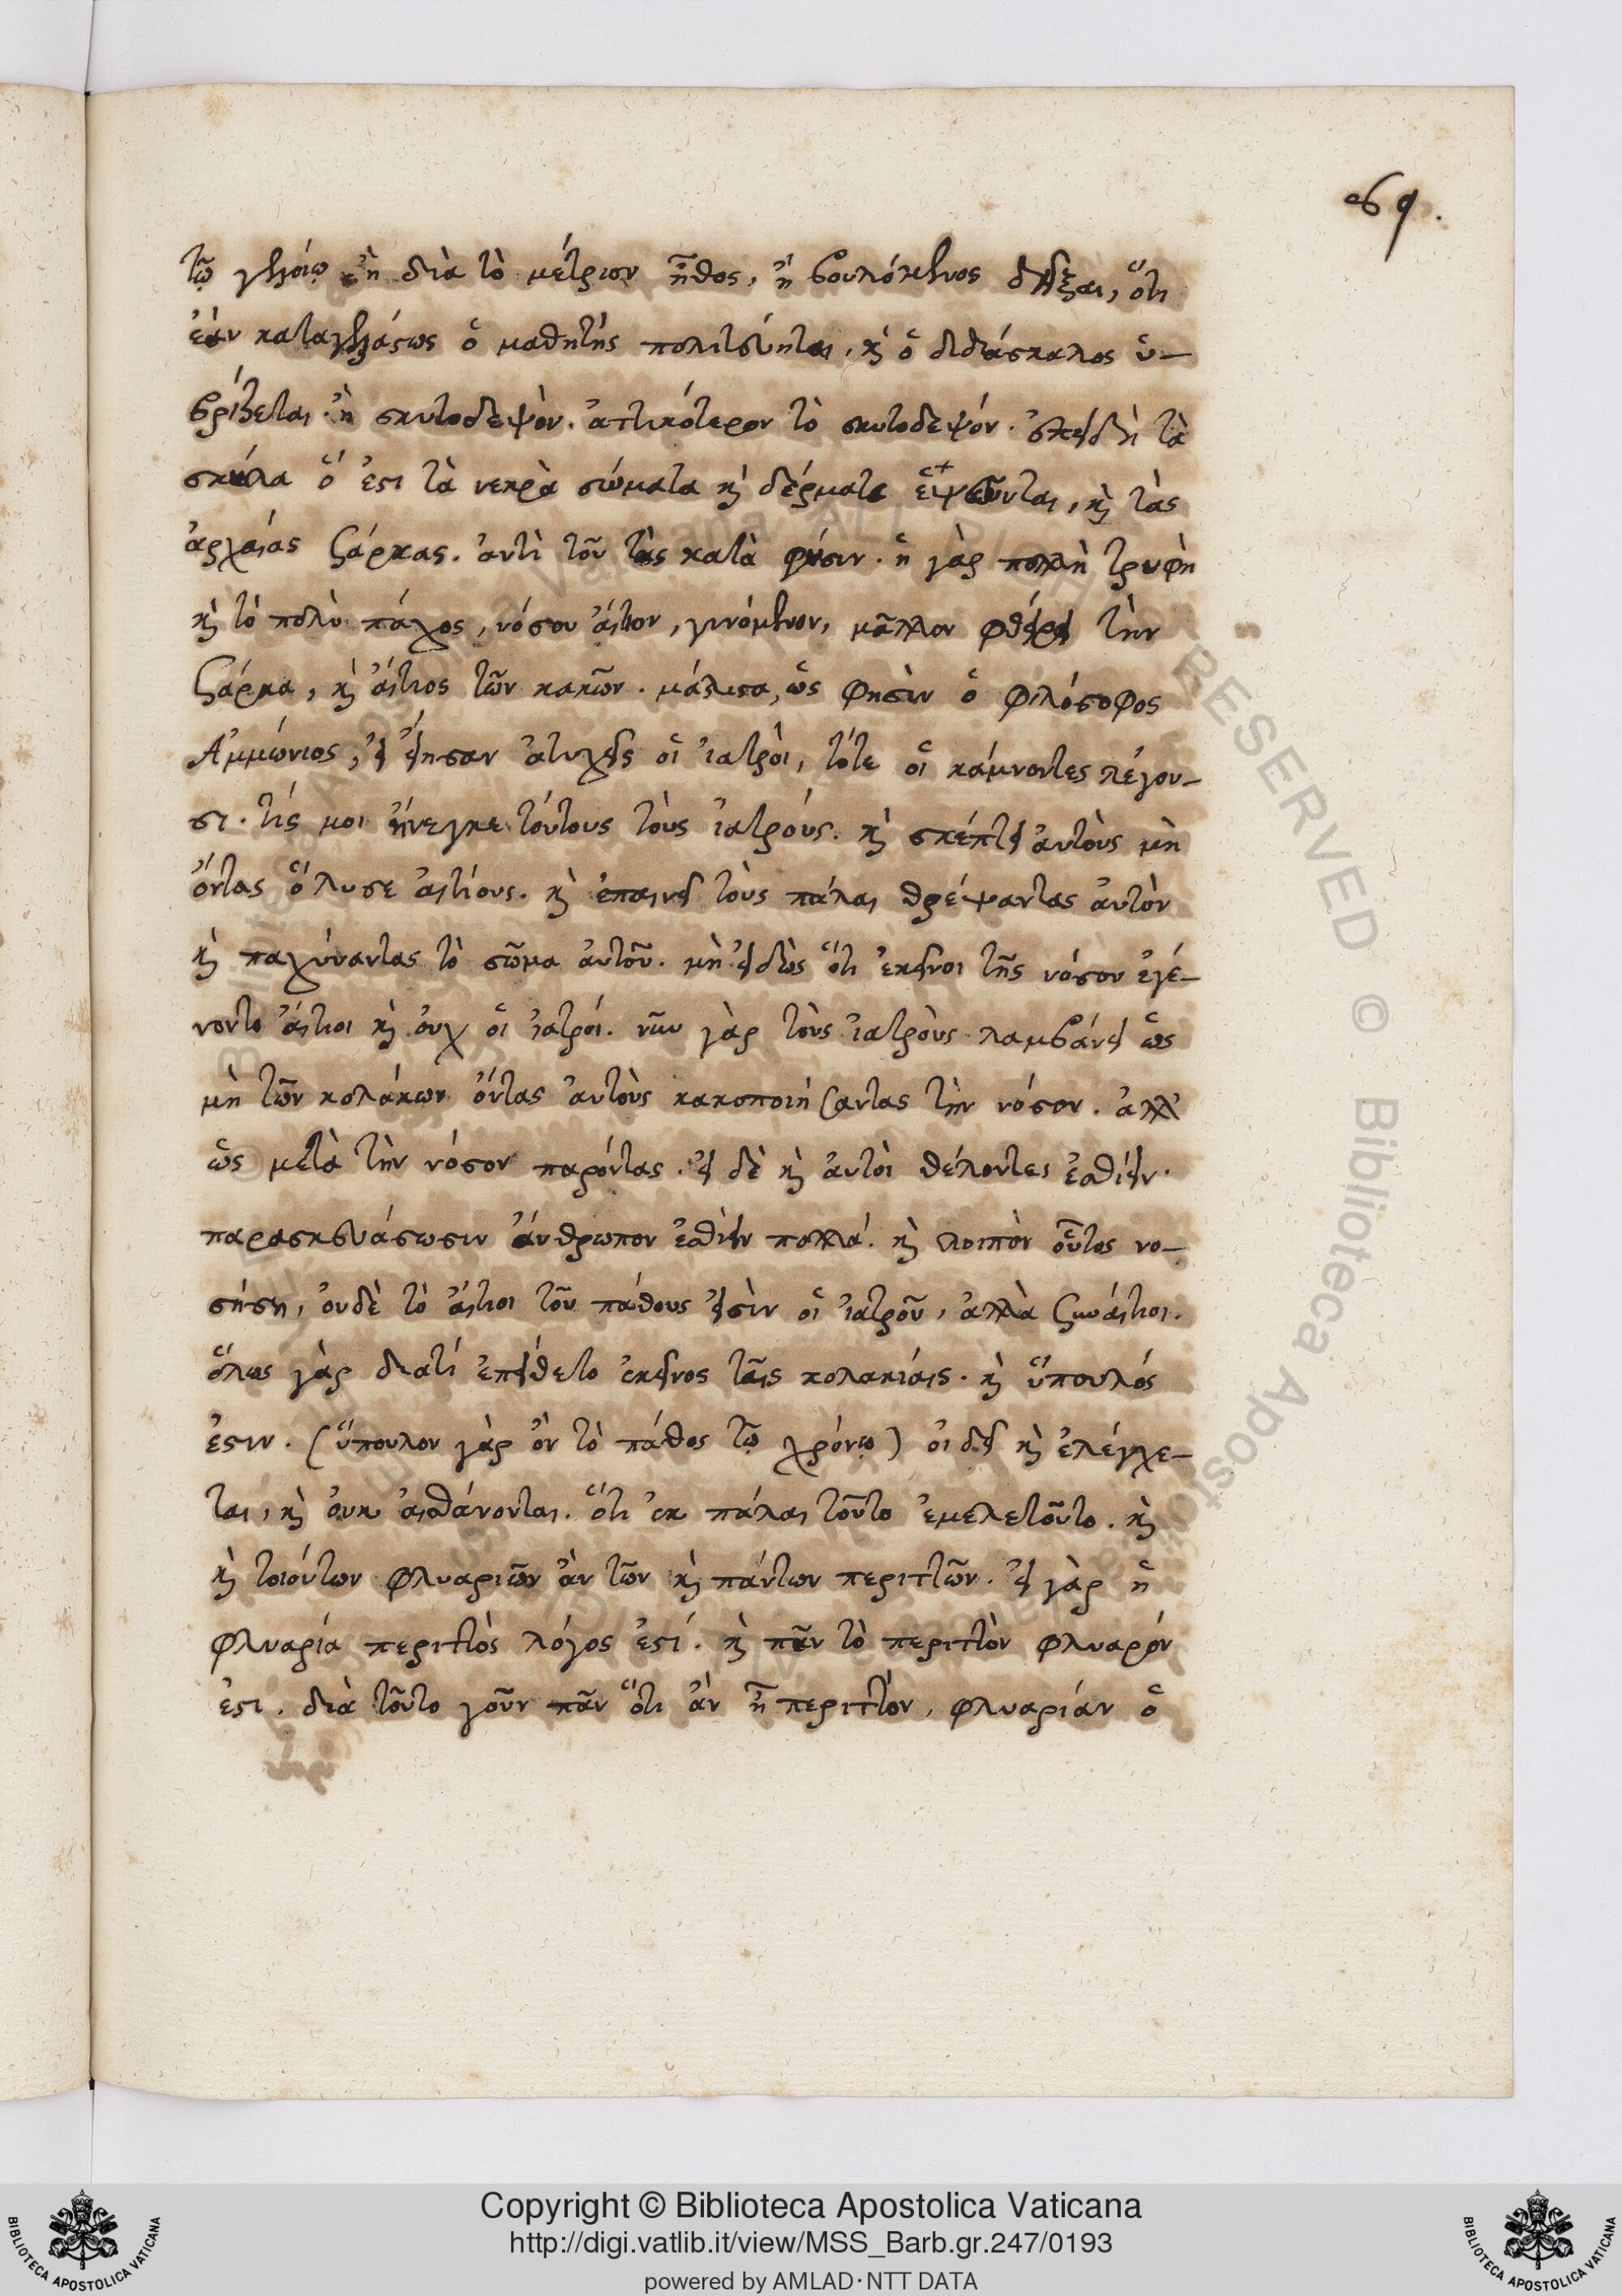 69.
τῷ γελοίῳ ἢ διὰ τὸ μέτριον ἦθος, ἢ βουλόμενος δεῖξαι, ὅτι
ἐὰν καταγελάστως ὁ μαθητὴς πολιτεύηται, καὶ ὁ διδάσκαλος ὑ-
βρίζεται. ἢ σκυτοδεψὸν. ἀττικότερον τὸ σκυτοδεψόν. ἐπειδὴ τὰ
σκύλα ὅ ἐστι τὰ νεκρὰ σώματα καὶ δέρματα, καὶ τὰς
ἀρχαίας σάρκας. ἀντὶ τοῦ τὰς κατὰ φύσιν. ἡ γὰρ πολλὴ τρυφὴ
καὶ τὸ πολὺ πάχος, νόσου αἴτιον, γινόμενον, μᾶλλον φθείρει τὴν
σάρκα, καὶ αἴτιος τῶν κακῶν. μάλιστα, ὡς φησὶν ὁ φιλόσοφος
Ἀμμώνιος, εἰ ἀτυχεῖς οἱ ἰατρὸι, τότε οἱ κάμνοντες λέγου-
σι. τίς μοι ἤνεγκε τούτους τοὺς ἰατρούς. καὶ σκέπτει αὐτοὺς μὴ
ὄντας αἰτίους. καὶ ἐπαινεῖ τοὺς πάλαι θρέψαντας αὐτὸν
καὶ παχύναντας τὸ σῶμα αὐτοῦ. μὴ εἰδὼς ὅτι ἐκεῖνοι τῆς νόσου ἐγέ-
νοντο αἴτιοι καὶ οὐχ οἱ ἰατροί. νῦν γὰρ τοὺς ἰατρὸυς λαμβάνει ὡς
μὴ τῶν κολάκων ὄντας αὐτοὺς κακοποιήσαντας τὴν νόσον. ἀλλ'
ὡς μετὰ τὴν νόσον παρόντας. εἰ δὲ καὶ αὐτοὶ θέλοντες ἐσθίειν.
παρασκευάσωσιν ἄνθρωπον ἐσθίειν πολλά. καὶ λοιπὸν οὗτος νο-
σήσῃ, οὐδὲ τὸ αἴτιοι τοῦ πάθους εἰσὶν οἱ ἰατροῦ, ἀλλὰ συναίτιοι.
ὅλως γὰρ διατί ἐπείθετο ἐκεῖνος ταῖς κολακίαις. καὶ ὕπουλός
ἐστιν. (ὕπουλον γὰρ ὂν τὸ πάθος τῷ χρόνῳ) οἰδεῖ καὶ ἐλέγχε-
ται, καὶ οὐκ αἰσθάνονται. ὅτι ἐκ πάλαι τοῦτο ἐμελετοῦτο. καὶ
καὶ τοιούτων φλυαριῶν ἀν τῶν καὶ πάντων περιττῶν. εἰ γὰρ ἡ
φλυαρία περιττὸς λόγος ἐστί. καὶ πᾶν τὸ περιττὸν φλυαρόν
ἐστι. διὰ τοῦτο γοῦν πᾶν ὅτι ἂν ἦ περιττόν, φλυαρίαν ὁ
© Biblioteca Apostolica Vaticana ALL RIGHTS RESERVED © Biblioteca Apostolica Vaticana
Copyright © Biblioteca Apostolica Vaticana
http://digi.vatlib.it/view/MSS_Barb.gr.247/0193
powered by AMLAD·NTT DATA
BIBLIOTECA APOSTOLICA VATICANA
BIBLIOTECA APOSTOLICA VATICANA